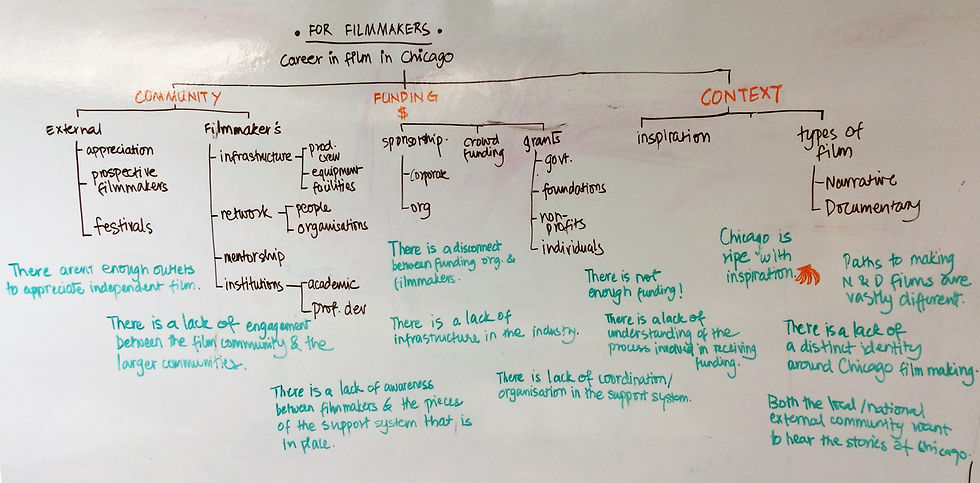 • FOR FILMMAKERS •
Career in film in Chicago
COMMUNITY
External
appreciation
prospective
filmmakers
festivals
Filmmaker's
infrastructure
prod.
crew
equipment
facilities
network
people
organisations
mentorship
institutions
academic
prof. dev
FUNDING
$
sponsorship
corporate
org
crowd
funding
grants
govt.
foundations
non-
profits
individuals
CONTEXT
inspiration
types of
film
Narrative
Documentary
There arent enough outlets
to appreciate independent film.
There is a lack of engagement
between the film community & the
larger communities.
There is a lack of awareness
between filmmakers & the pieces
of the support system that is
in place.
There is a disconnect
between funding org. &
filmmakers.
There is a lack of
infrastructure in the industry.
There is lack of coordination/
organisation in the support system.
There is not
enough funding!
There is a lack of
understanding of the
process involved in receiving
funding.
Chicago is
ripe with
inspiration.
Paths to making
N & D films are
vastly different.
There is a lack of
a distinct identity
around Chicago film making.
Both the local/national
external community want
to hear the stories of Chicago.